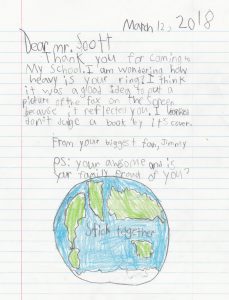 March 12, 2018
Dear mr. Scott
Thank you for coming to
My School. I am wondering how
heavy is your ring? I think
it was a good idea to put a
picture of the fox on the screen
because it reflected you. I learned
don't judge a book by it's cover.
From your biggest fan, Jimmy
PS: your awesome and is
your family proud of you?
Stick together